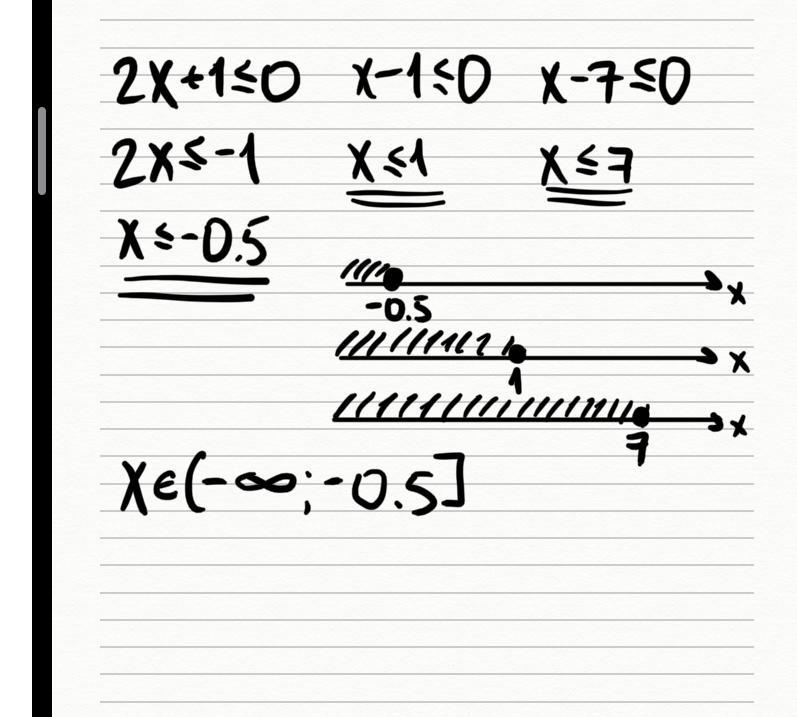 2x+1≤0 x-1≤0 x-7≤0
2x≤-1 x≤1 x≤7
x≤-0.5
x
-0.5
x
1
x
7
x∈(-∞;-0.5]